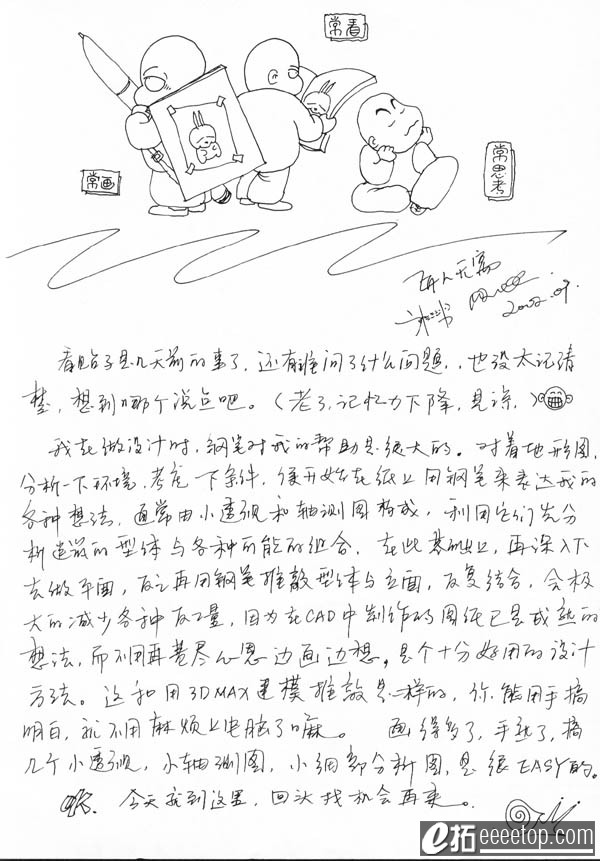 常看
常画
常思考
2002.09.
看贴子是几天前的事了，还有谁问了什么问题，也没太记清
楚，想到哪个说点吧。（老了，记忆力下降，见谅，）
我在做设计时，钢笔对我的帮助是很大的。对着地形图，
分析一下环境，考虑下条件，便开始在纸上用钢笔来表达我的
各种想法，通常由小透视和轴测图构成，利用它们先分
析造景的型体与各种可能的组合，在此基础上，再深入下
去做平面，反之再用钢笔推敲型体与立面，反复结合，会极
大的减少各种反工量，因为在CAD中制作的图纸已是成熟的
想法，而不用再费尽心思边画边想。是个十分好用的设计
方法。这和用3DMAX建模推敲是一样的，你能用手搞
明白，就不用麻烦上电脑了嘛。 画得多了，手熟了，搞
几个小透视，小轴测图，小细部分析图，是很EASY的。
OK. 今天就到这里，回头找机会再来。
e拓 eeeetop.com